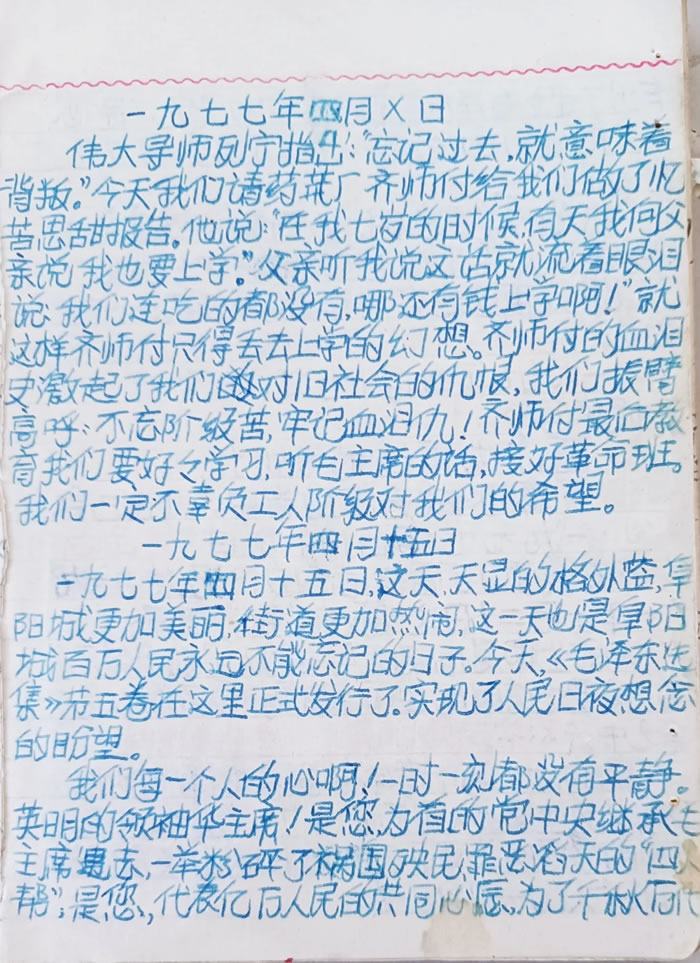 一九七七年四月X日
伟大导师列宁指出:“忘记过去,就意味着
背叛。”今天我们请药菜厂齐师付给我们做了忆
苦思甜报告。他说:“在我七岁的时候,有天我向父
亲说我也要上学。”父亲听我说这话就流着眼泪
说:我们连吃的都没有,哪还有钱上学啊!”就
这样齐师付只得丢去上学的幻想。齐师付的血泪
史激起了我们对旧社会的仇恨,我们振臂
高呼:不忘阶级苦,牢记血泪仇!齐师付最后教
育我们要好々学习,听毛主席的话,接好革命班。
我们一定不辜负工人阶级对我们的希望。
一九七七年四月十五日
一九七七年四月十五日,这天,天显的格外蓝,阜
阳城更加美丽,街道更加热闹,这一天也是阜阳
城百万人民永远不能忘记的日子。今天,《毛泽东选
集》第五卷在这里正式发行了。实现了人民日夜想念
的盼望。
我们每一个人的心啊!一时一刻都没有平静。
英明的领袖华主席!是您,为首的党中央继承毛
主席遗志,一举粉碎了祸国殃民罪恶滔天的“四人
帮”;是您,代表亿万人民的共同心愿,为了千秋万代